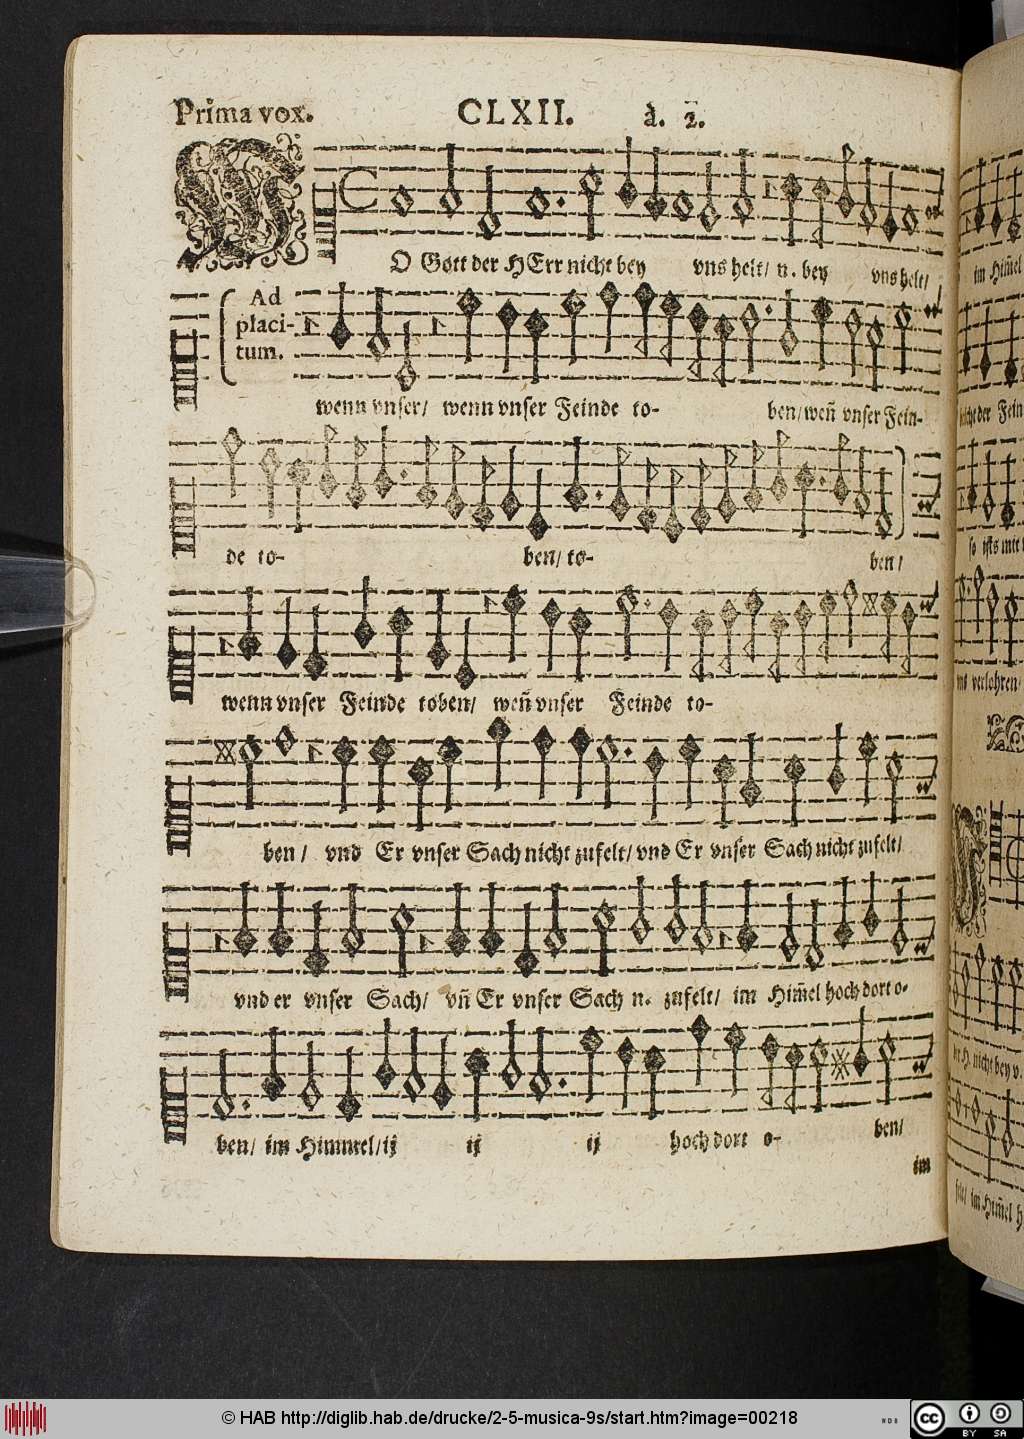 Prima vox. CLXII. à. 2.
WO Gott der HErr nicht bey vns helt/ n. bey vns helt/
Ad
placi-
tum.
wenn vnser/ wenn vnser Feinde to- ben/ weñ vnser Fein-
de to- ben/ to- ben/
wenn vnser Feinde toben/ weñ vnser Feinde to-
ben/ vnd Er vnser Sach nicht zufelt/ vnd Er vnser Sach nicht zufelt/
vnd er vnser Sach/ vñ Er vnser Sach n. zufelt/ im Him̃el hoch dort o-
ben/ im Himmel/ ij ij ij hoch dort o- ben/
im
im Him̃el
der Fein
so ists mit
verlohren/
der H. nicht bey v.
im Him̃el h
© HAB http://diglib.hab.de/drucke/2-5-musica-9s/start.htm?image=00218
NDB
cc
BY SA